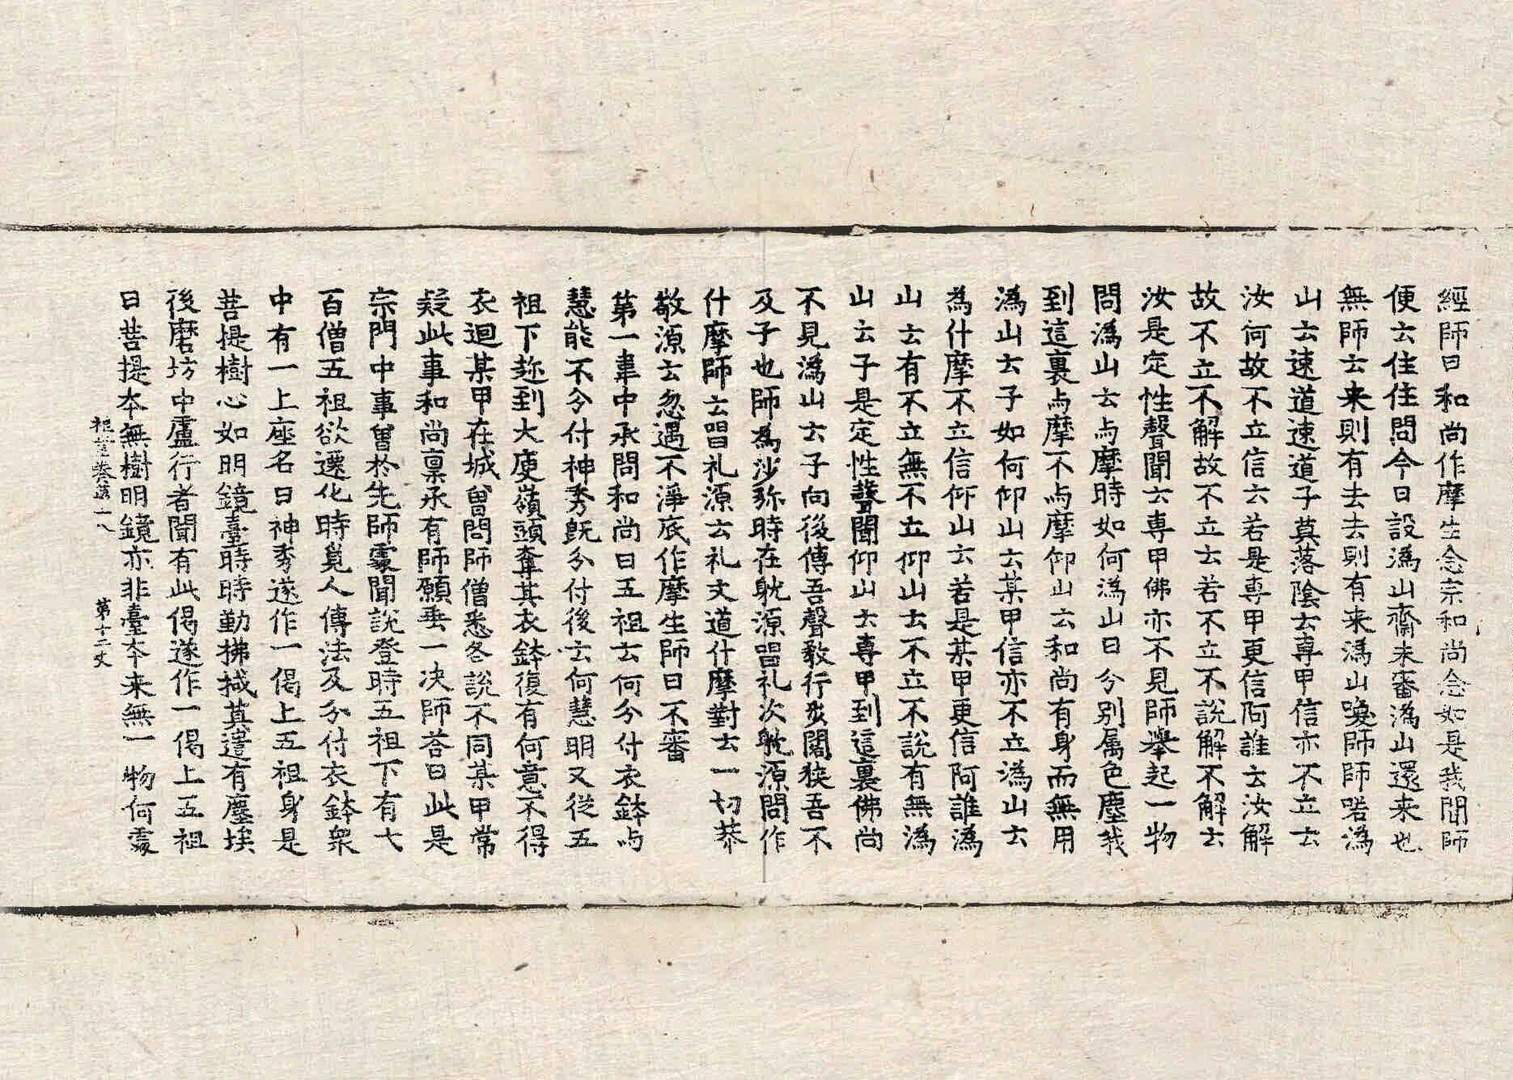 經師曰和尚作摩生念宗和尚念如是我聞師
便云住住問今日設潙山齋未審潙山還来也
無師云来則有去去則有来潙山喚師師喏潙
山云速道速道子莫落陰云專甲信亦不立云
汝何故不立信云若是專甲更信阿誰云汝解
故不立不解故不立云若不立不說解不解云
汝是定性聲聞云專甲佛亦不見師舉起一物
問潙山云与摩時如何潙山曰分別属色塵我
到這裏与摩不与摩仰山云和尚有身而無用
潙山云子如何仰山云某甲信亦不立潙山云
為什摩不立信仰山云若是某甲更信阿誰潙
山云有不立無不立仰山云不立不說有無潙
山云子是定性聲聞仰山云專甲到這裏佛尚
不見潙山云子向後傳吾聲教行𭛠闊狹吾不
及子也師為沙弥時在躭源唱礼次躭源問作
什摩師云唱礼源云礼文道什摩對云一切恭
敬源云忽遇不淨底作摩生師曰不審
第一韋中承問和尚曰五祖云何分付衣鉢与
慧能不分付神秀既分付後云何慧明又從五
祖下趂到大庾嶺頭奪其衣鉢復有何意不得
衣迴某甲在城曾問師僧悉各說不同某甲常
疑此事和尚禀承有師願垂一决師荅曰此是
宗門中事曾於先師處聞說登時五祖下有七
百僧五祖欲遷化時覓人傳法及分付衣鉢衆
中有一上座名曰神秀遂作一偈上五祖身是
菩提樹心如明鏡臺時時勤拂拭莫遣有塵埃
後磨坊中盧行者聞有此偈遂作一偈上五祖
曰菩提夲無樹明鏡亦非臺夲来無一物何處
祖堂卷第十八　第十二丈